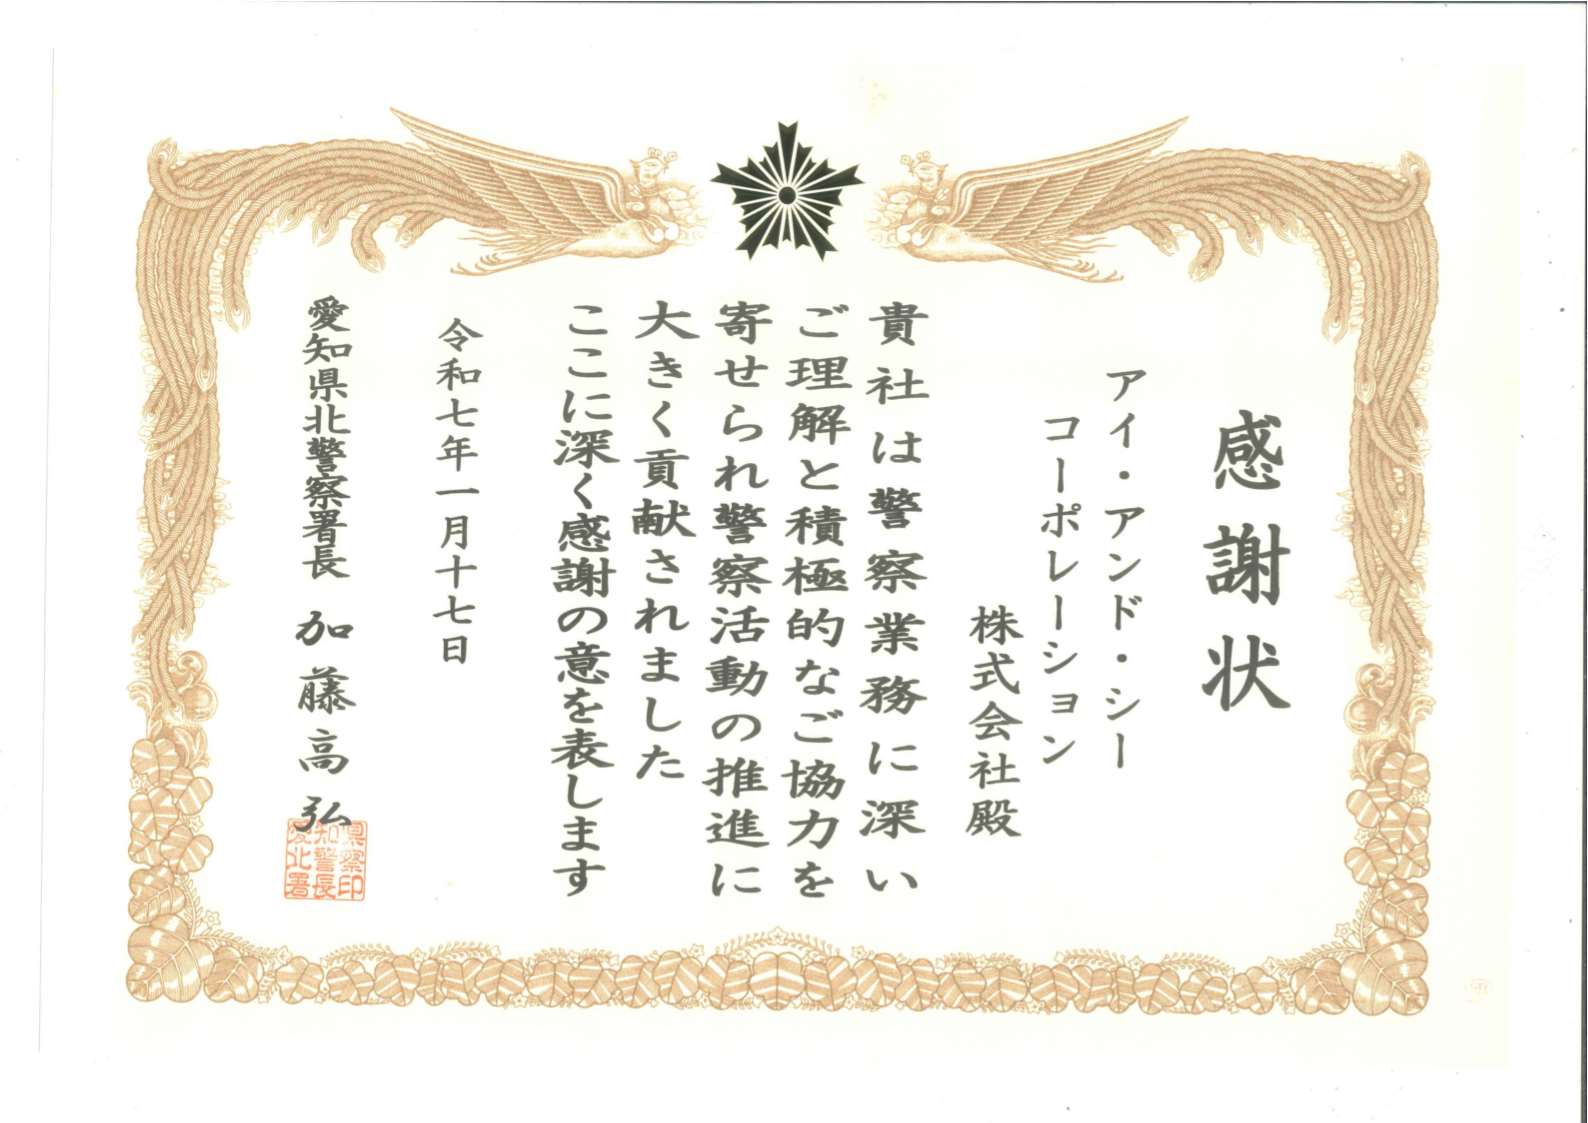 感謝状
アイ・アンド・シー
コーポレーション
株式会社殿
貴社は警察業務に深い
ご理解と積極的なご協力を
寄せられ警察活動の推進に
大きく貢献されました
ここに深く感謝の意を表します
令和七年一月十七日
愛知県北警察署長 加藤高弘
県察印
知警長
愛北署